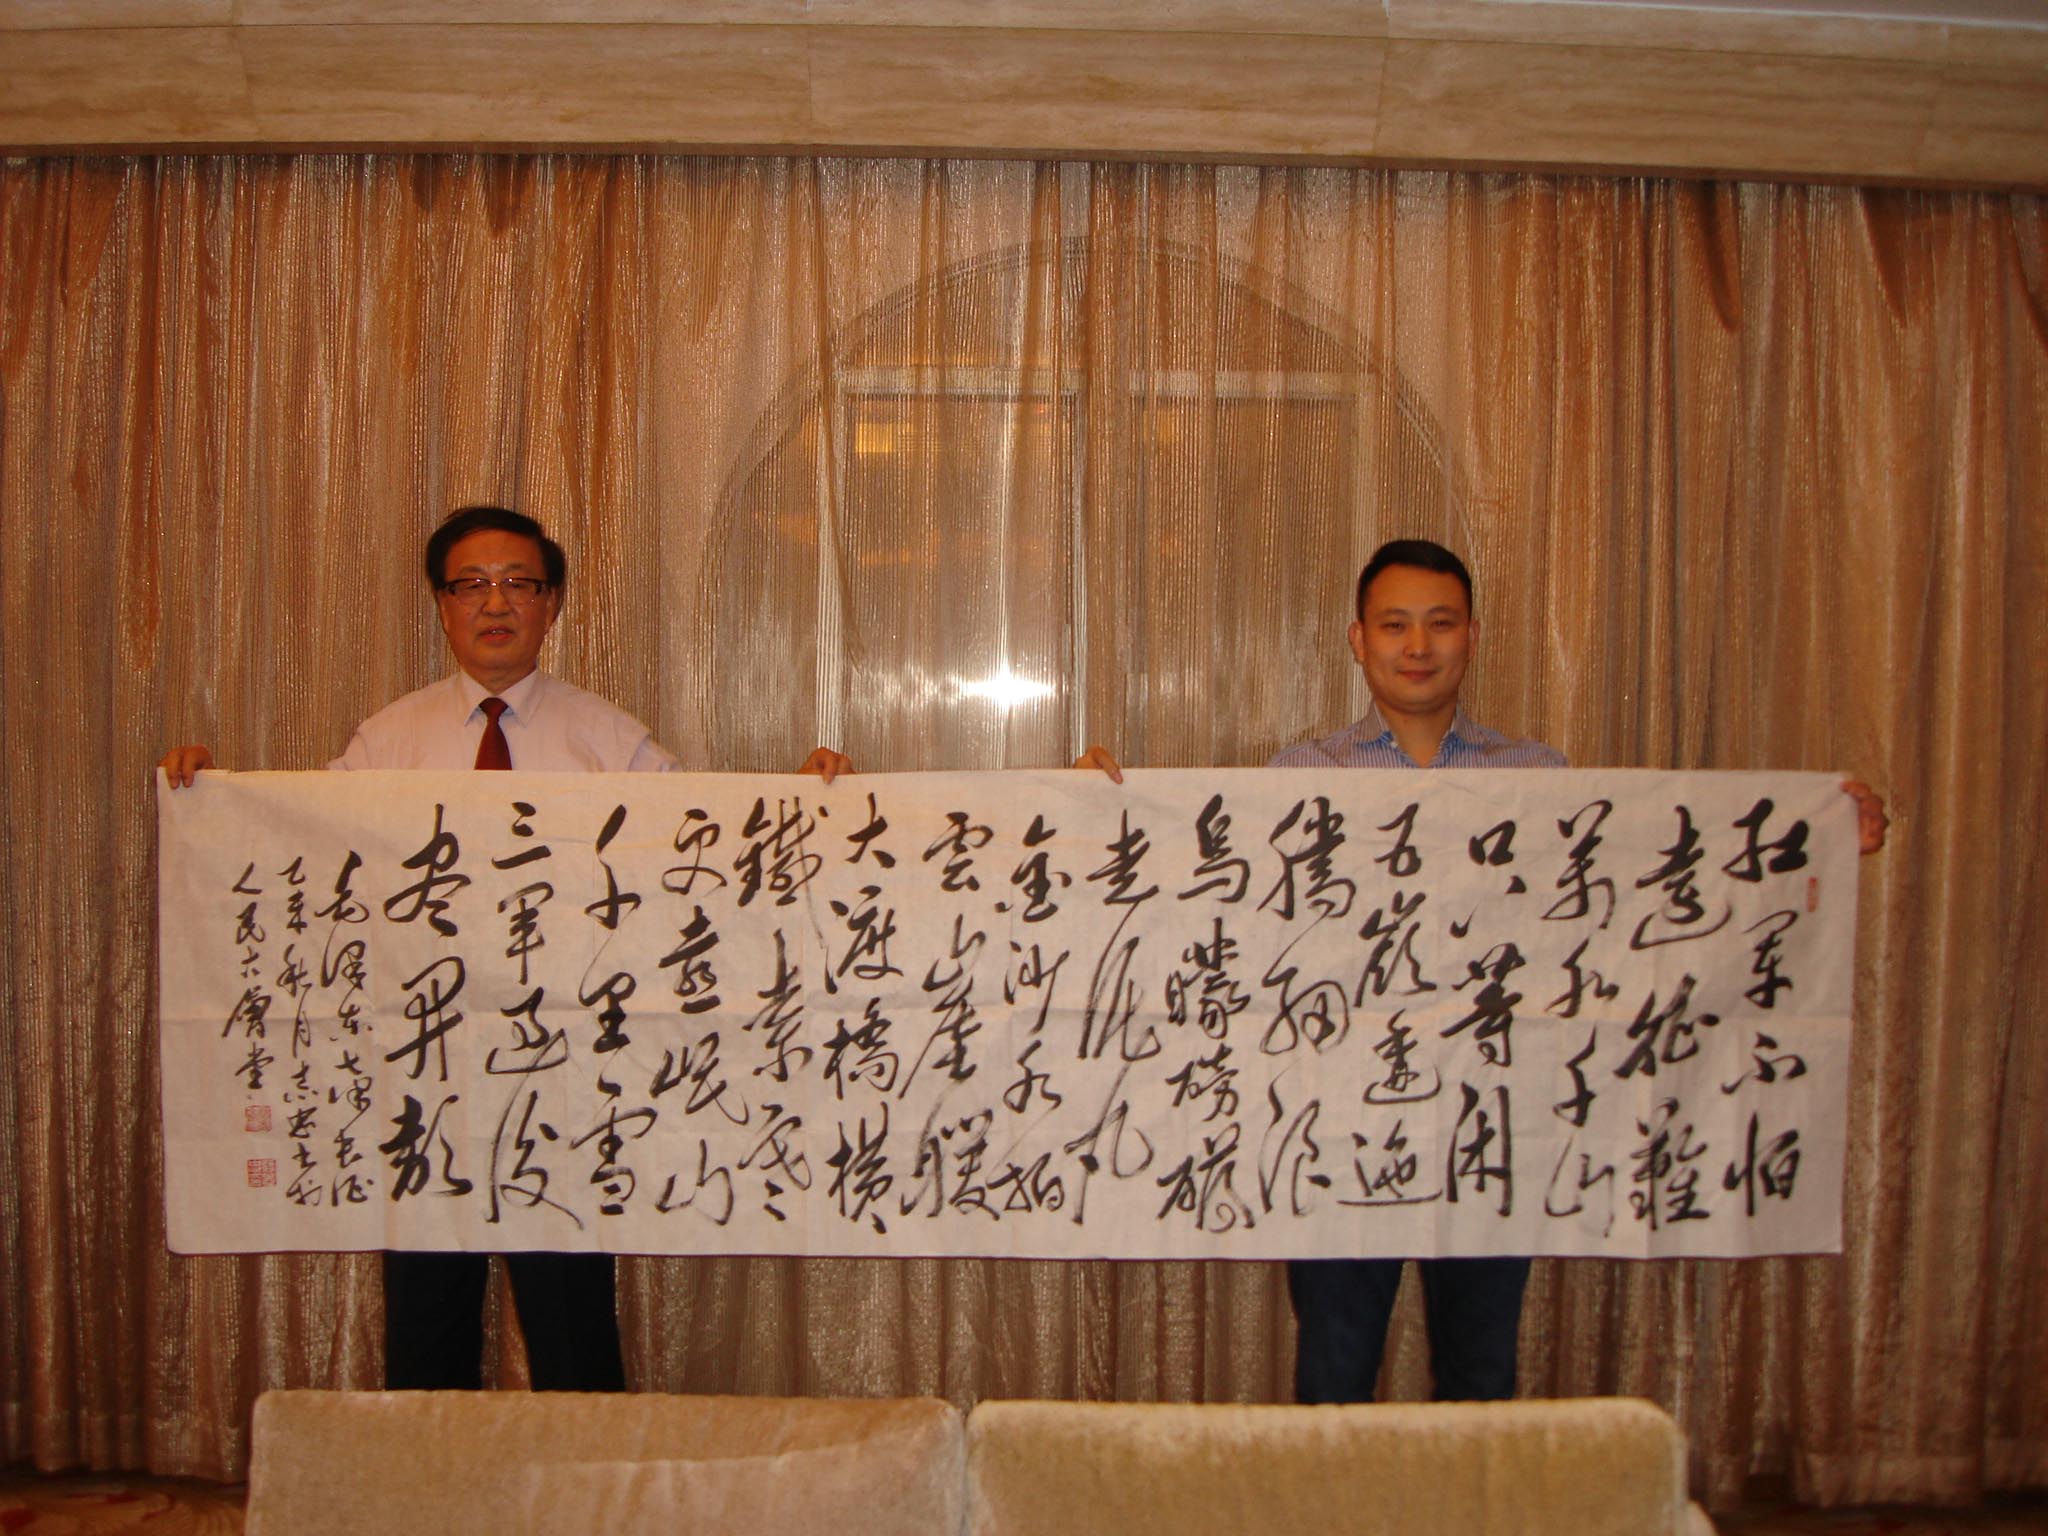 紅軍不怕
遠征難
萬水千山
只等閑
五嶺逶迤
騰細浪
烏矇磅礴
走泥丸
金沙水拍
雲崖暖
大渡橋橫
鐵索寒
更喜岷山
千里雪
三軍過後
盡開顏
毛澤東七律長征
乙未秋月志忠書於
人民大會堂